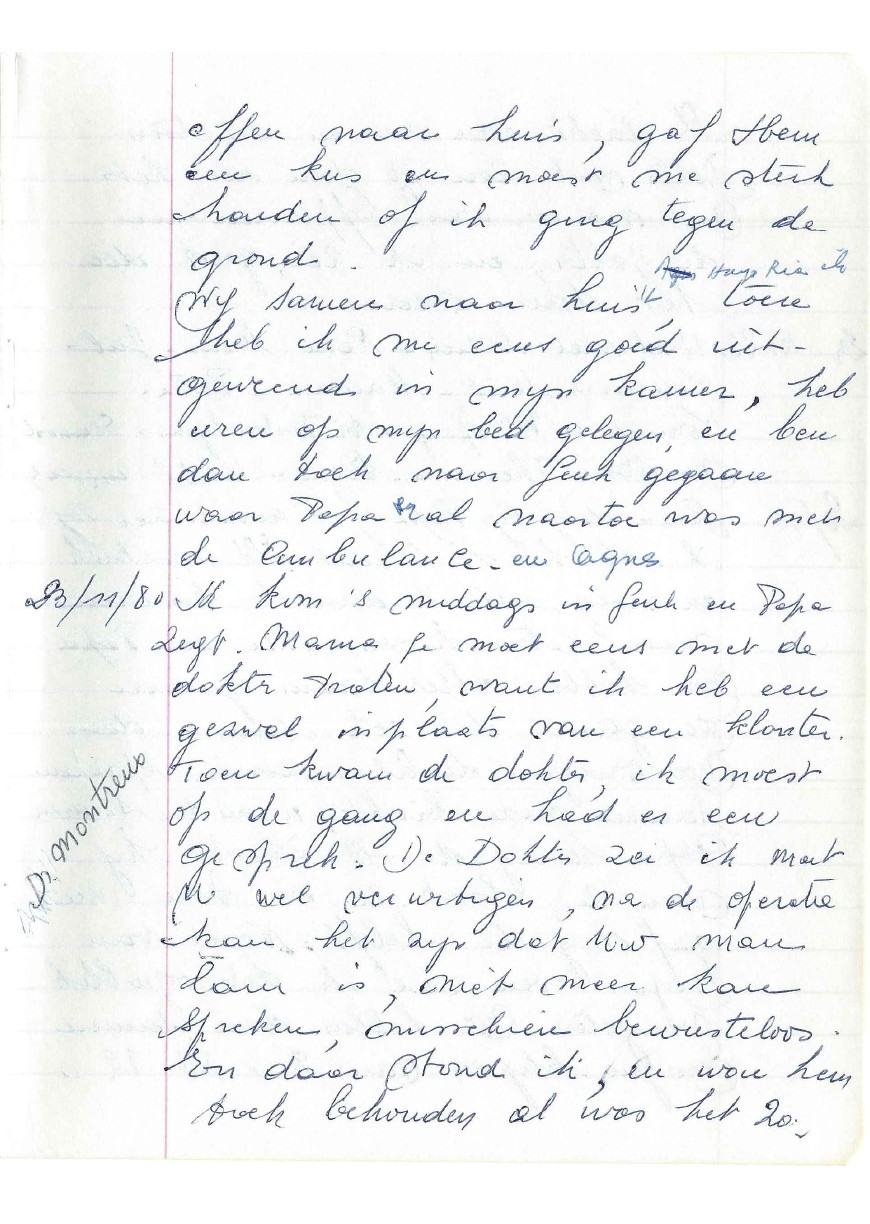 effen naar huis, gaf Hem
een kus en moest me sterk
houden of ik ging tegen de
grond.
Hugo Ria ik
Wij samen naar huis, toen
heb ik me eens goed uit-
geweend in mijn kamer, heb
uren op mijn bed gelegen, en ben
dan toch naar Genk gegaan
waar Papa al naartoe was met
de Ambulance - en Agnes
23/11/80 Ik kom 's middags in Genk en Papa
zegt. Mama je moet eens met de
dokter praten, want ik heb een
gezwel inplaats van een klonter.
Toen kwam de dokter, ik moest
op de gang en had er een
gesprek. De Dokter zei ik moet
U wel verwittigen, na de operatie
kan het zijn dat Uw man
lam is, niet meer kan
spreken, misschien bewusteloos.
En daar stond ik, en wou hem
toch behouden al was het zo.
Dr. Montreus